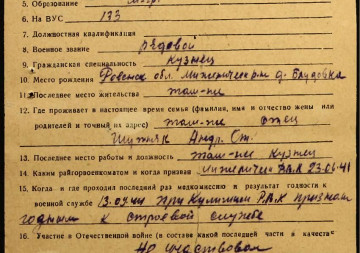 5. Образование
6. На ВУС 133
7. Должностная квалификация
8. Военное звание рядовой
9. Гражданская специальность кузнец
10. Место рождения Ровенск обл. д.
11. Последнее место жительства там-же
12. Где проживает в настоящее время семья (фамилия, имя и отчество жены или
родителей и точный их адрес) там-же отец
Андр. Ст.
13. Последнее место работы и должность там-же кузнец
14. Каким райгорвоенкоматом и когда призван 23.06.41
15. Когда и где проходил последний раз медкомиссию и результат годности к
военной службе 13.04.44 при РВК признан
годным к строевой службе
16. Участие в Отечественной войне (в составе какой последней части и в качестве
Не участвовал